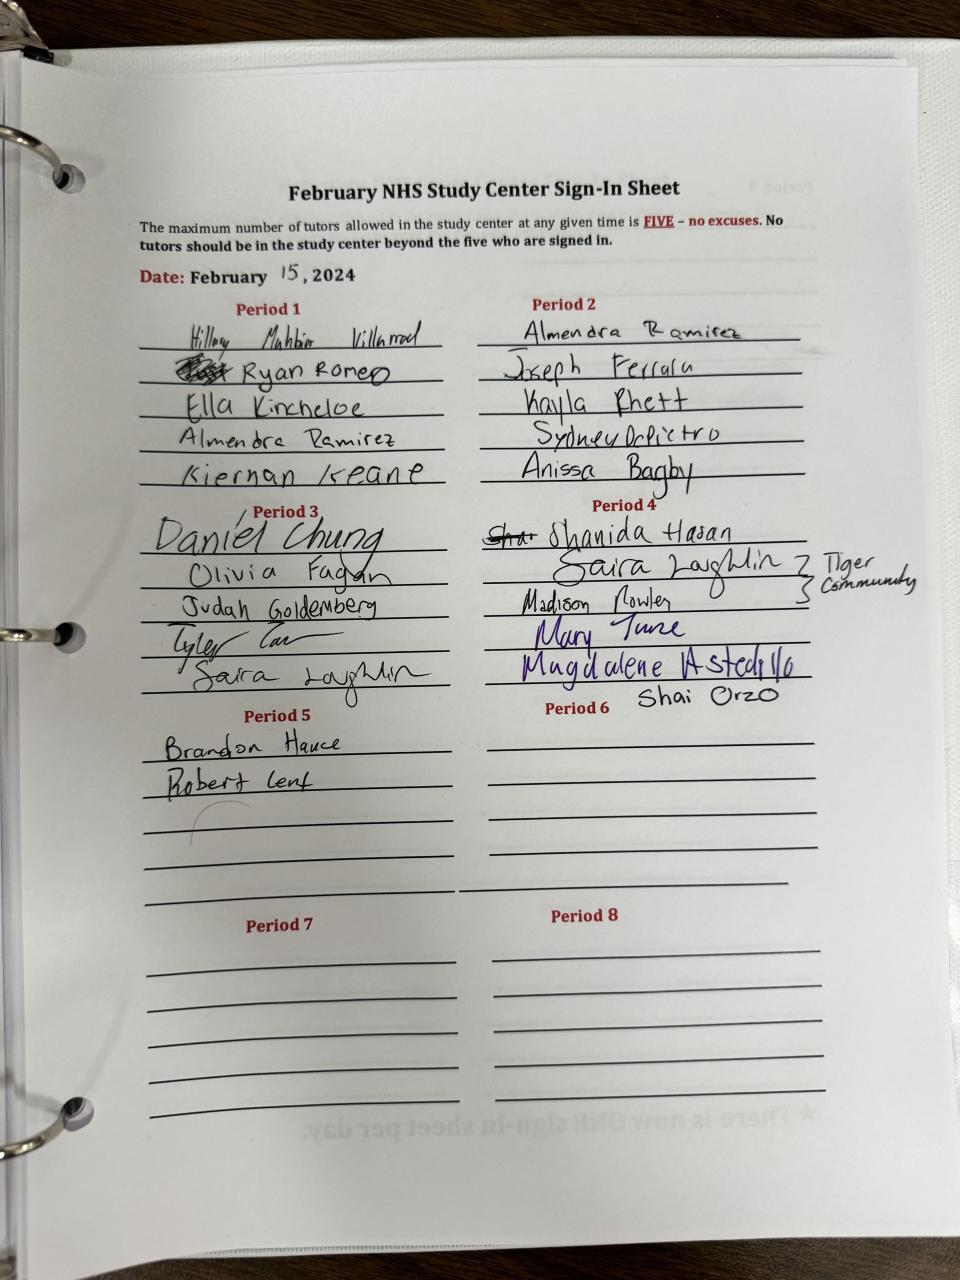 February NHS Study Center Sign-In Sheet
The maximum number of tutors allowed in the study center at any given time is FIVE – no excuses. No
tutors should be in the study center beyond the five who are signed in.
Date: February 15, 2024
Period 1
Hillary Mahbir
Ryan Romeo
Ella Kincheloe
Almendra Ramirez
Kiernan Keane
Period 2
Almendra Ramirez
Joseph Ferrara
Kayla Rhett
Sydney DePietro
Anissa Bagby
Period 3
Daniel Chung
Olivia Fagan
Judah Goldemberg
Tyler
Saira Laughlin
Period 4
Shanida Hasan
Saira Laughlin
Tiger
Community
Madison Rowley
Mary
Magdalene Astedillo
Shai Orzo
Period 5
Brandon
Robert
Period 6
Period 7
Period 8
There is now ONE sign-in sheet per day.